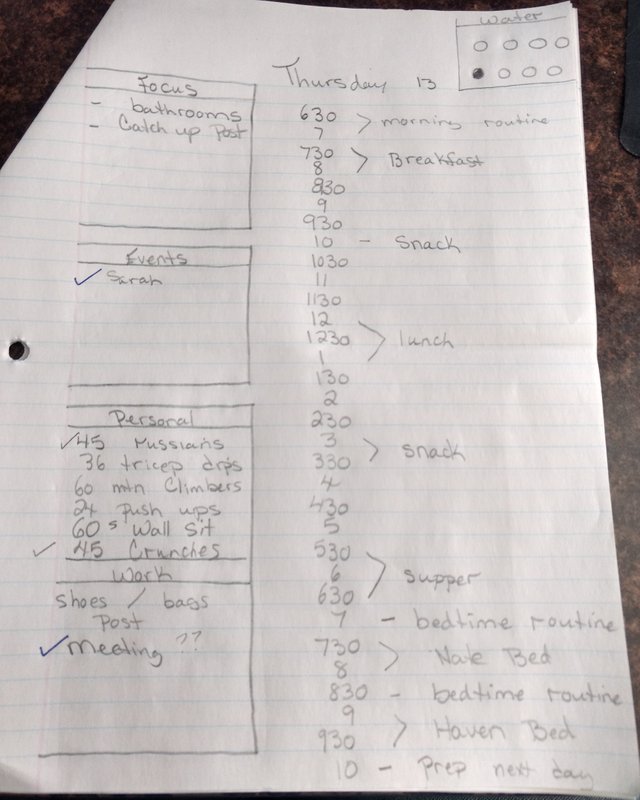 Water
Thursday 13
Focus
- bathrooms
- Catch up Post
Events
✓ Sarah
Personal
✓ 45 Russians
36 tricep dips
60 mtn Climbers
24 push ups
60s Wall Sit
✓ 45 Crunches
Work
shoes / bags
Post
✓ meeting ??
630
7 > morning routine
730
8 > Breakfast
830
9
930
10 - Snack
1030
11
1130
12
1230 > lunch
1
130
2
230
3
330 > snack
4
430
5
530
6 > supper
630
7 - bedtime routine
730
8 > Nate Bed
830 - bedtime routine
9
930 > Haven Bed
10 - Prep next day